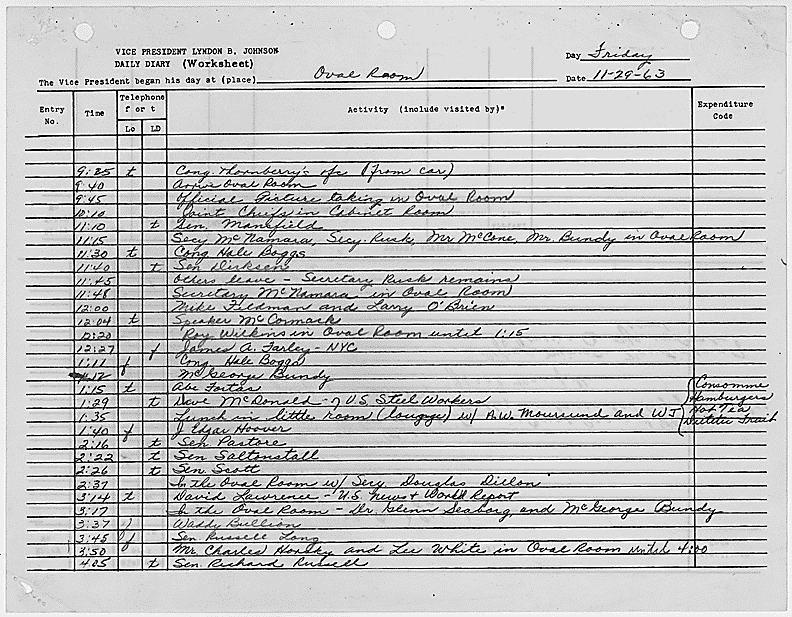 VICE PRESIDENT LYNDON B. JOHNSON
DAILY DIARY (Worksheet)
Day Friday
The Vice President began his day at (place) Oval Room Date 11-29-63
Entry No. Time Telephone f or t Lo LD Activity (include visited by)* Expenditure Code
9:25 t Cong. Thornberry's ofc (from car)
9:40 Arrive Oval Room
9:45 Official Picture taking in Oval Room
10:10 Joint Chiefs in Cabinet Room
11:10 t Sen. Mansfield
11:15 Secy McNamara, Secy. Rusk, Mr McCone, Mr. Bundy in Oval Room
11:30 t Cong Hale Boggs
11:40 t Sen Dirksen
11:45 Others leave - Secretary Rusk remains
11:48 Secretary McNamara in Oval Room
12:00 Mike Feldman and Larry O'Brien
12:04 t Speaker McCormack
12:20 Roy Wilkins in Oval Room until 1:15
12:27 f James A. Farley - NYC
1:11 f Cong. Hale Boggs
1:12 McGeorge Bundy
1:15 t Abe Fortas
1:29 t Dave McDonald - U.S. Steel Workers
1:35 Lunch in little room (lounge) w/ A.W. Moursund and WJ Consomme Hamburgers Hot Tea Dietetic Fruit
1:40 f J Edgar Hoover
2:16 t Sen Pastore
2:22 t Sen Saltonstall
2:26 t Sen. Scott
2:37 In the Oval Room w/ Secy Douglas Dillon
3:14 t David Lawrence - U.S. News & World Report
3:17 In the Oval Room - Dr. Glenn Seaborg and McGeorge Bundy
3:37 Waddy Bullion
3:45 f Sen Russell Long
3:50 Mr. Charles Horsky and Lee White in Oval Room until 4:00
4:05 t Sen. Richard Russell